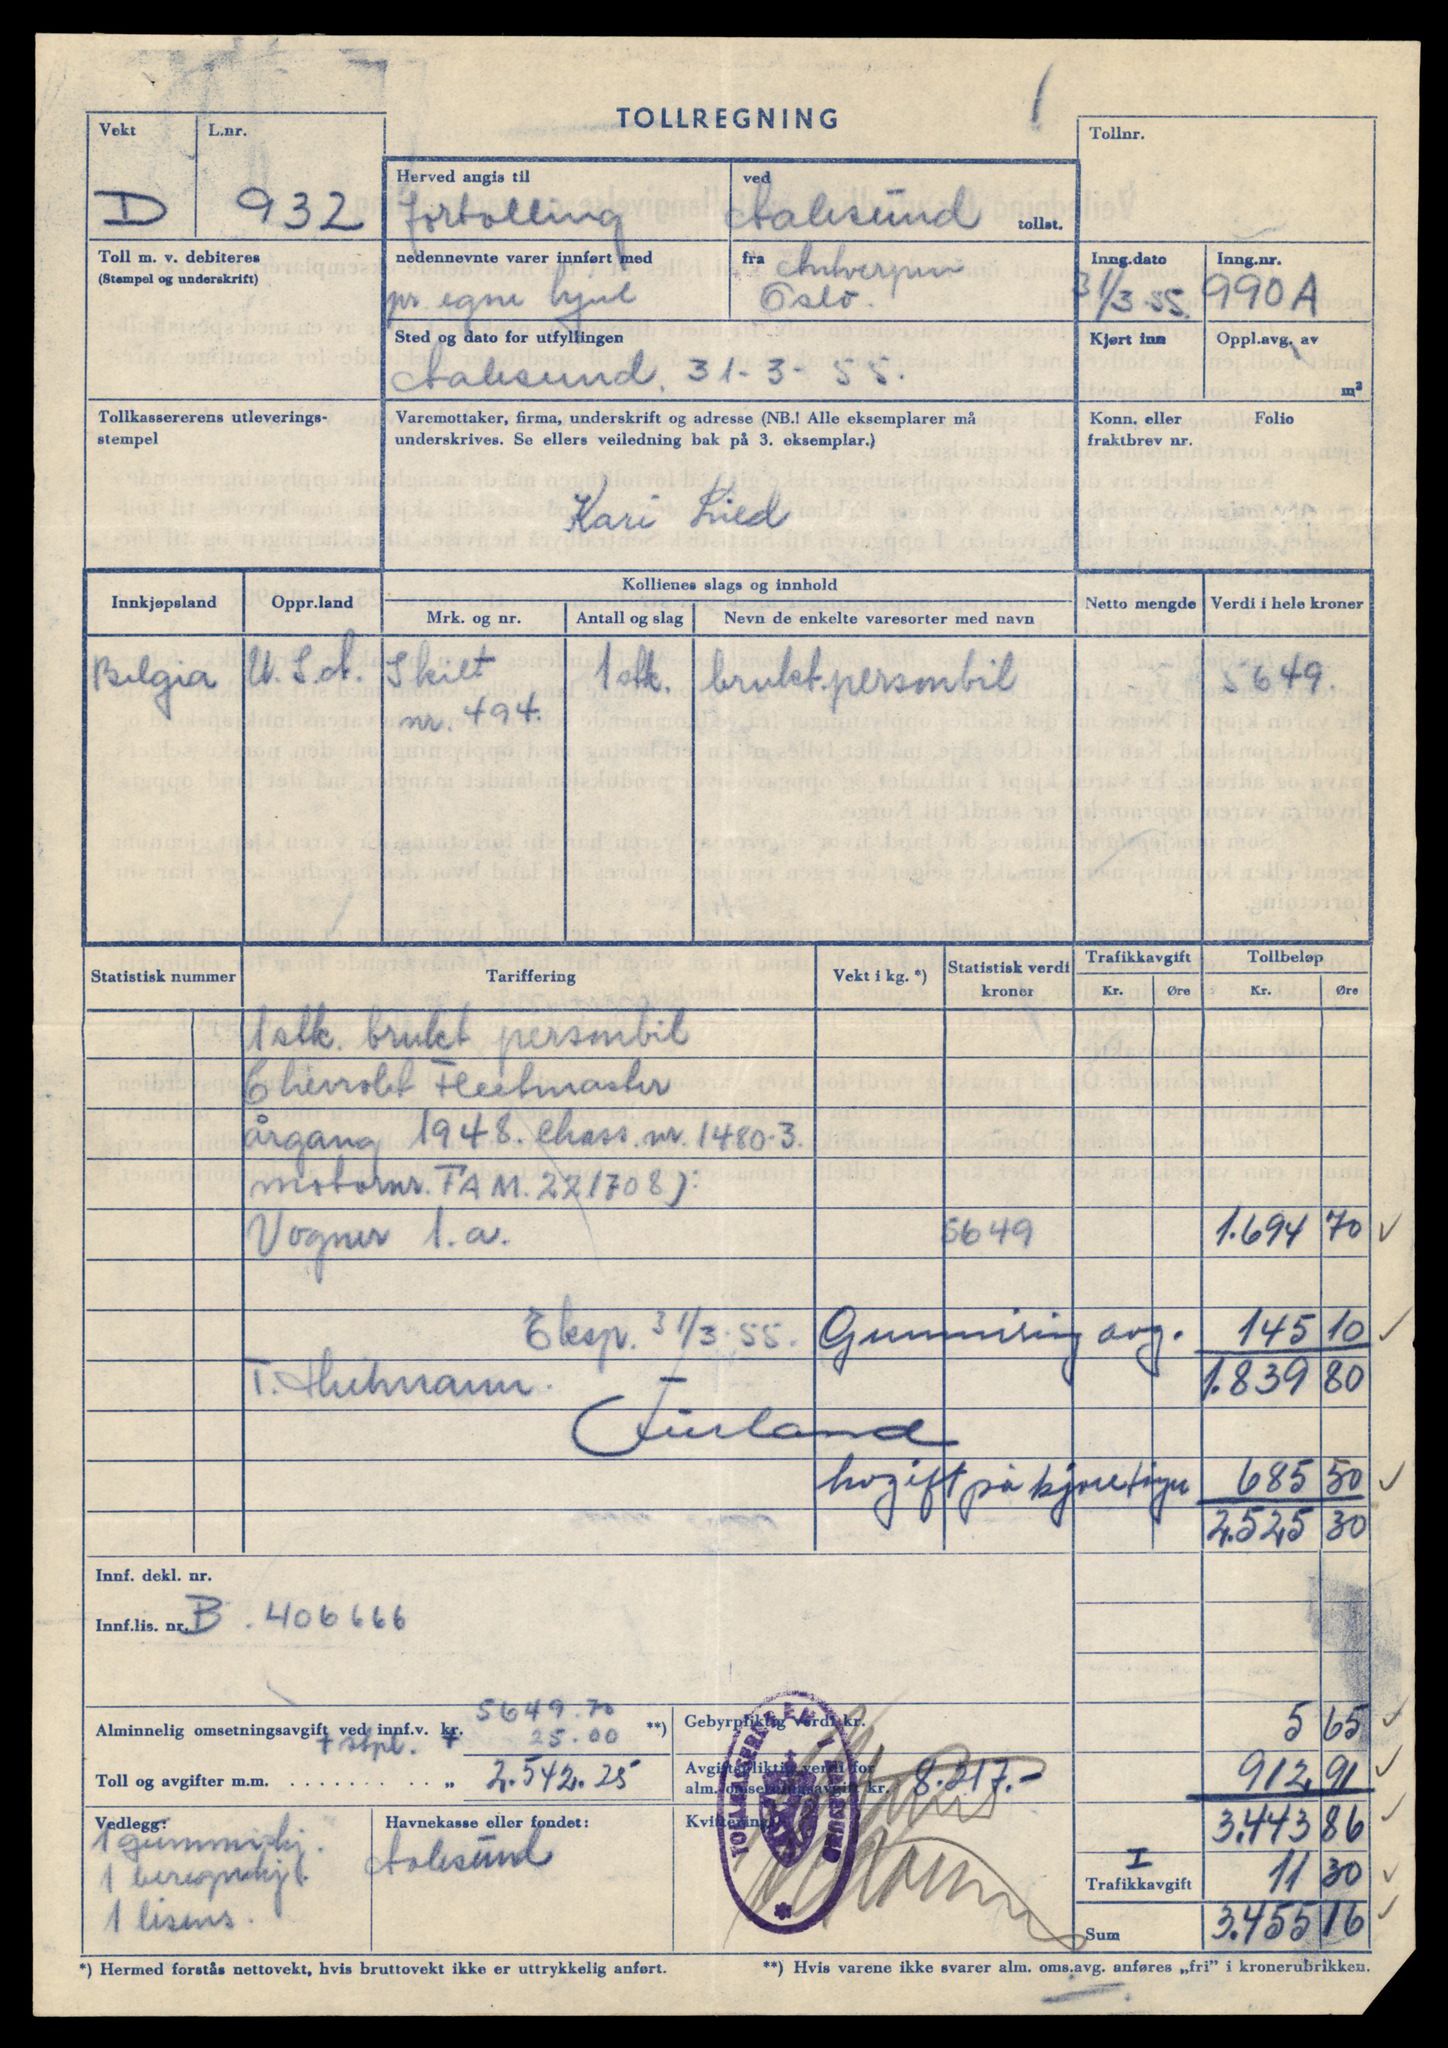 TOLLREGNING
Vekt
L.nr.
D
932
Herved angis til
fortolling
ved
Aalesund
tollst.
Tollnr.
Toll m. v. debiteres
(Stempel og underskrift)
nedennevnte varer innført med
pr. egne hjul
fra
Antverpen
Oslo.
Inng.dato
31/3.55.
Inng.nr.
990A
Sted og dato for utfyllingen
Aalesund. 31-3-55.
Kjørt inn
Oppl.avg. av
m³
Tollkassererens utleverings-
stempel
Varemottaker, firma, underskrift og adresse (NB.! Alle eksemplarer må
underskrives. Se ellers veiledning bak på 3. eksemplar.)
Konn. eller
fraktbrev nr.
Folio
Kari Lied
Innkjøpsland
Oppr.land
Kollienes slags og innhold
Mrk. og nr.
Antall og slag
Nevn de enkelte varesorter med navn
Netto mengde
Verdi i hele kroner
Belgia U.S.A. Skilt 1 stk. brukt personbil 5649.
nr. 494.
Statistisk nummer
Tariffering
Vekt i kg. *)
Statistisk verdi
kroner
Trafikkavgift
Kr. Øre
Tollbeløp
Kr. Øre
1 stk. brukt personbil
Chevrolet Fleetmaster
årgang 1948. Chass. nr. 1480-3.
motornr. FAM. 221708):
Vogner 1. a. 5649 1.694 70
Eksp. 31/3.55. Gummiring avg. 145 10
1.839 80
avgift på kjøretøyer 685 50
2.525 30
Innf. dekl. nr.
Innf.lis. nr. B. 406666
Alminnelig omsetningsavgift ved innf.v. kr. 5649.70
+ stpl. + 25.00 **)
Toll og avgifter m.m. . . . . . . . . . „ 2.542.25
Gebyrpliktig verdi kr.
5 65
Avgiftspliktig verdi for
alm. omsetningsavgift kr. 8.217.-
912,91
3.443 86
Vedlegg:
1 gummi
1
1 lisens.
Havnekasse eller fondet:
Aalesund
Kvittering:
TOLLKASSEREREN I ÅLESUND
I
Trafikkavgift 11 30
Sum 3.455 16
*) Hermed forstås nettovekt, hvis bruttovekt ikke er uttrykkelig anført.
**) Hvis varene ikke svarer alm. oms.avg. anføres „fri” i kronerubrikken.